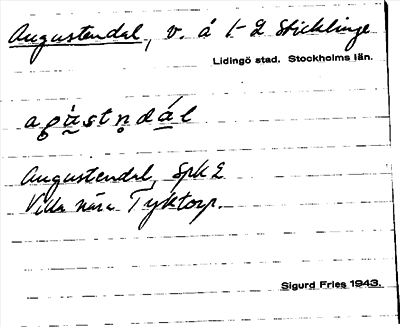 Augustendal, v. å 1-2 Sticklinge
Lidingö stad. Stockholms län.
Augustendal, Spk 2
Villa nära Tyktorp.
Sigurd Fries 1943.